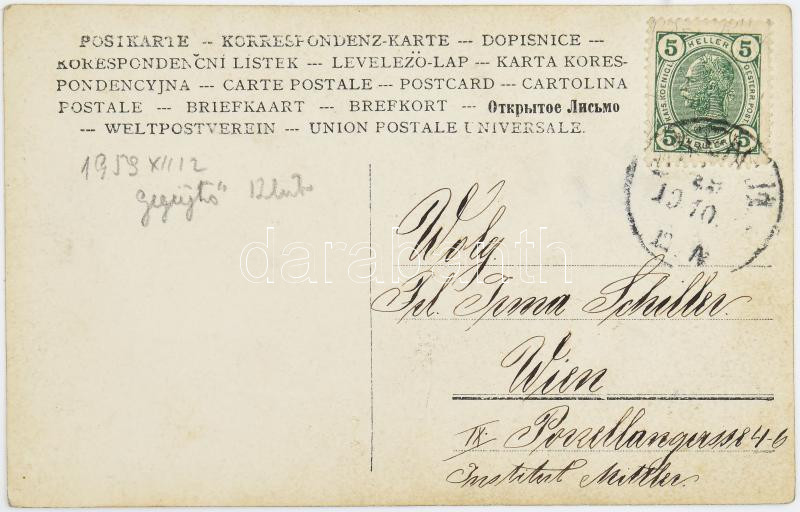 POSTKARTE -- KORRESPONDENZ-KARTE --- DOPISNICE ---
KORESPONDENČNÍ LÍSTEK --- LEVELEZŐ-LAP --- KARTA KORES-
PONDENCYJNA --- CARTE POSTALE --- POSTCARD --- CARTOLINA
POSTALE --- BRIEFKAART --- BREFKORT --- Открытое Лисьмо
--- WELTPOSTVEREIN --- UNION POSTALE UNIVERSALE.
5 HELLER 5
KAIS. KOENIGL. OESTERR. POST
5 HELLER 5
1959 XII 12
10
darabanth
Wolg.
Frl. Irma Schiller.
Wien
IX. Porzellangasse 4-6
Institut Mittler.